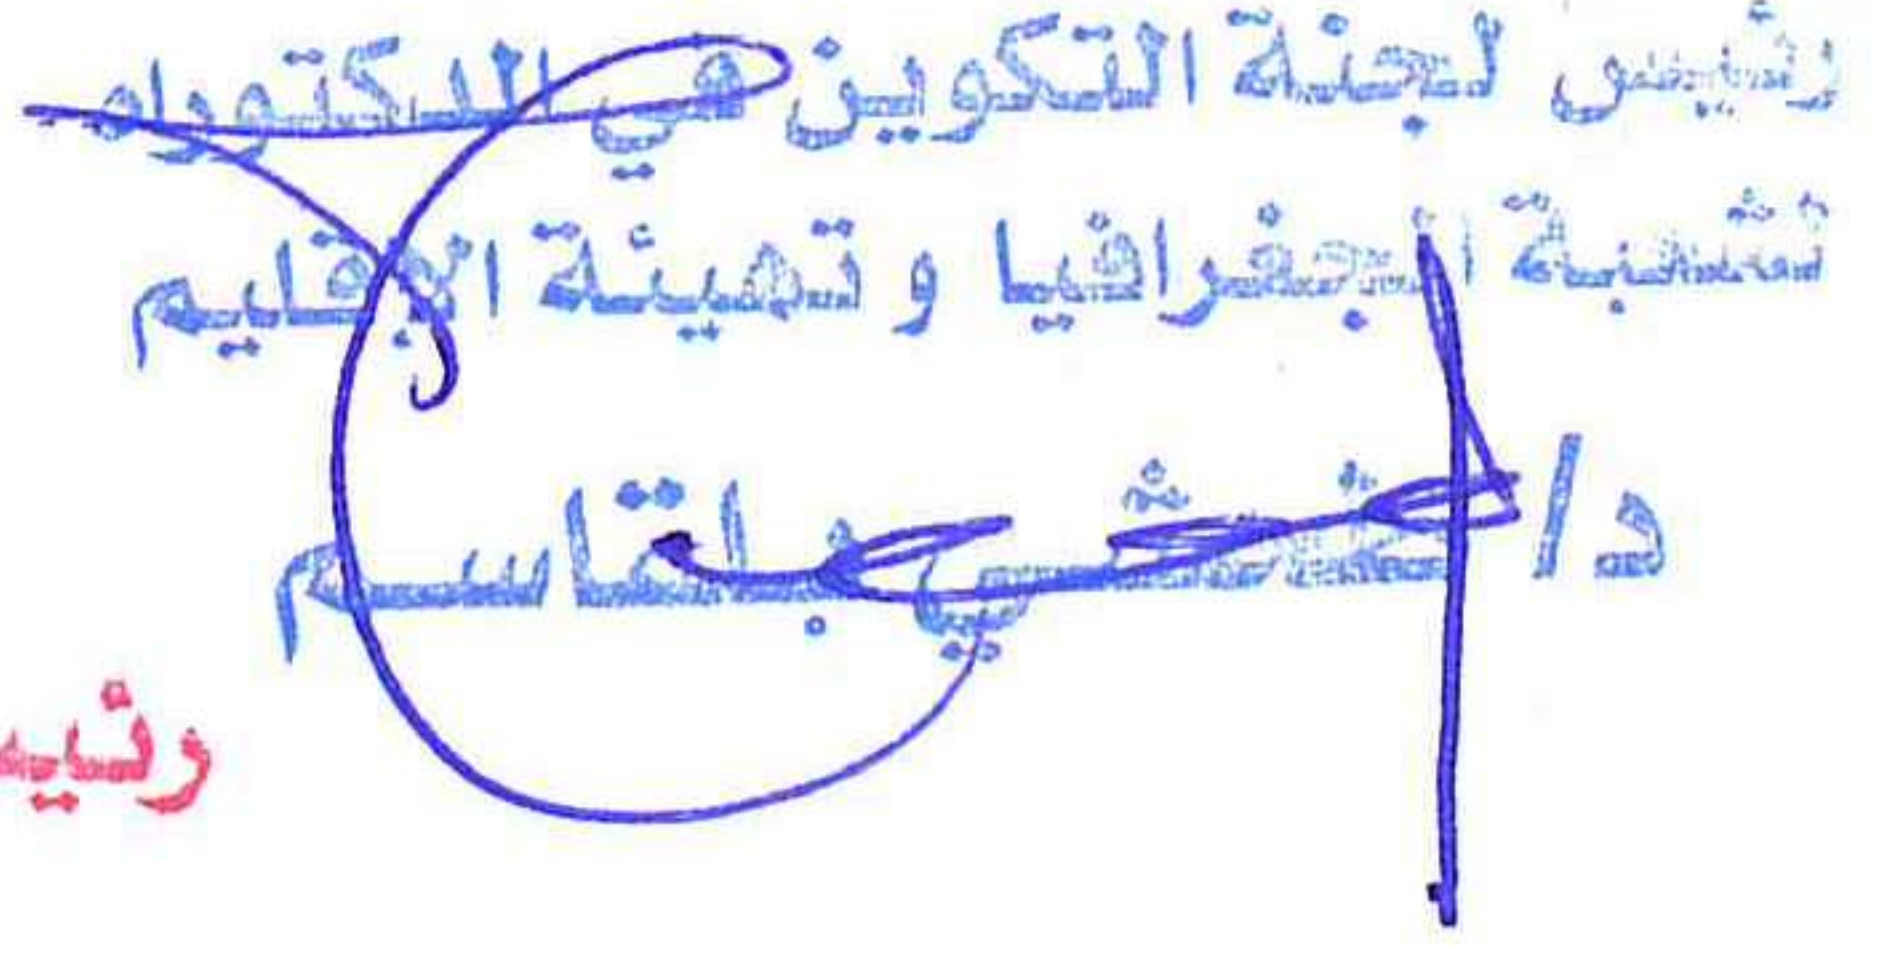 رئيس لجنة التكوين في الدكتوراه
شعبة الجغرافيا و تهيئة الإقليم
د/ بلقاسم
رئيس